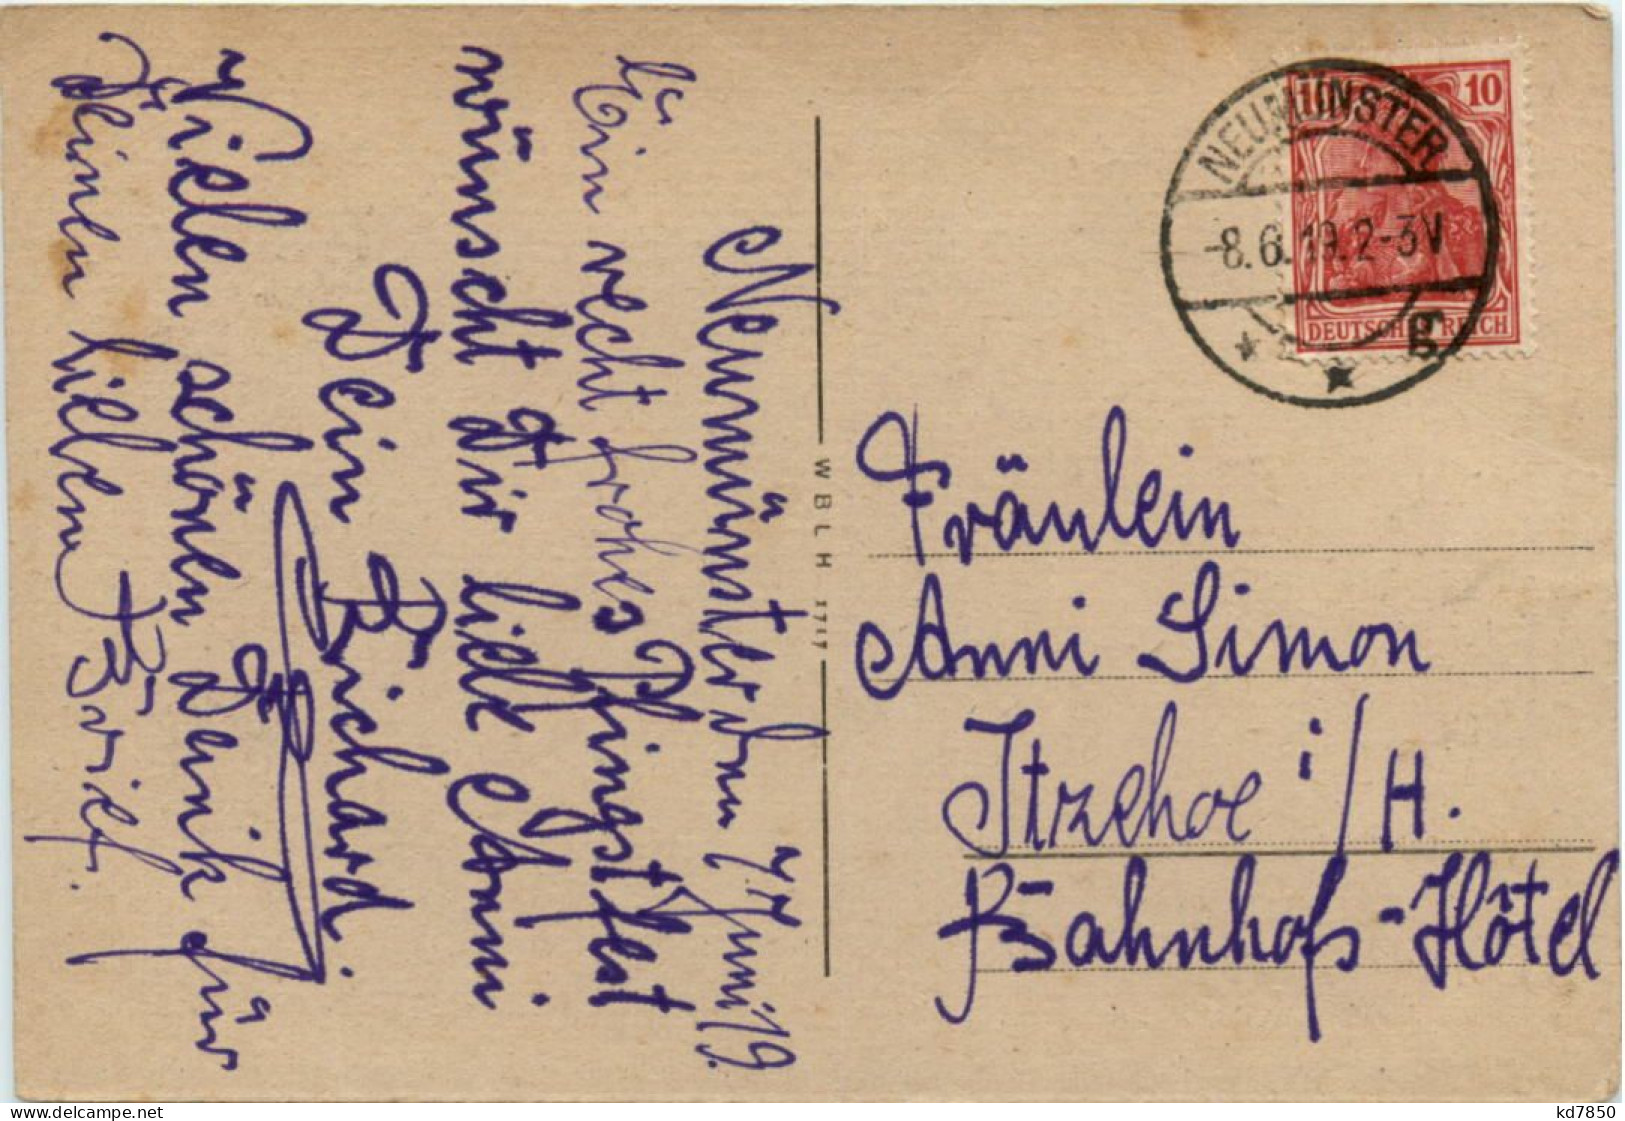 Neumünster den 7. Juni 19.
Ein recht frohes Pfingstfest
wünscht dir liebe Anni
Dein Richard.
Vielen schönen Dank für
Deinen lieben Brief.
WBLH 1717
NEUMÜNSTER
-8.6.19.2-3V
10
DEUTSCHES REICH
Fräulein
Anni Simon
Itzehoe i/H.
Bahnhofs-Hôtel
www.delcampe.net
kd7850